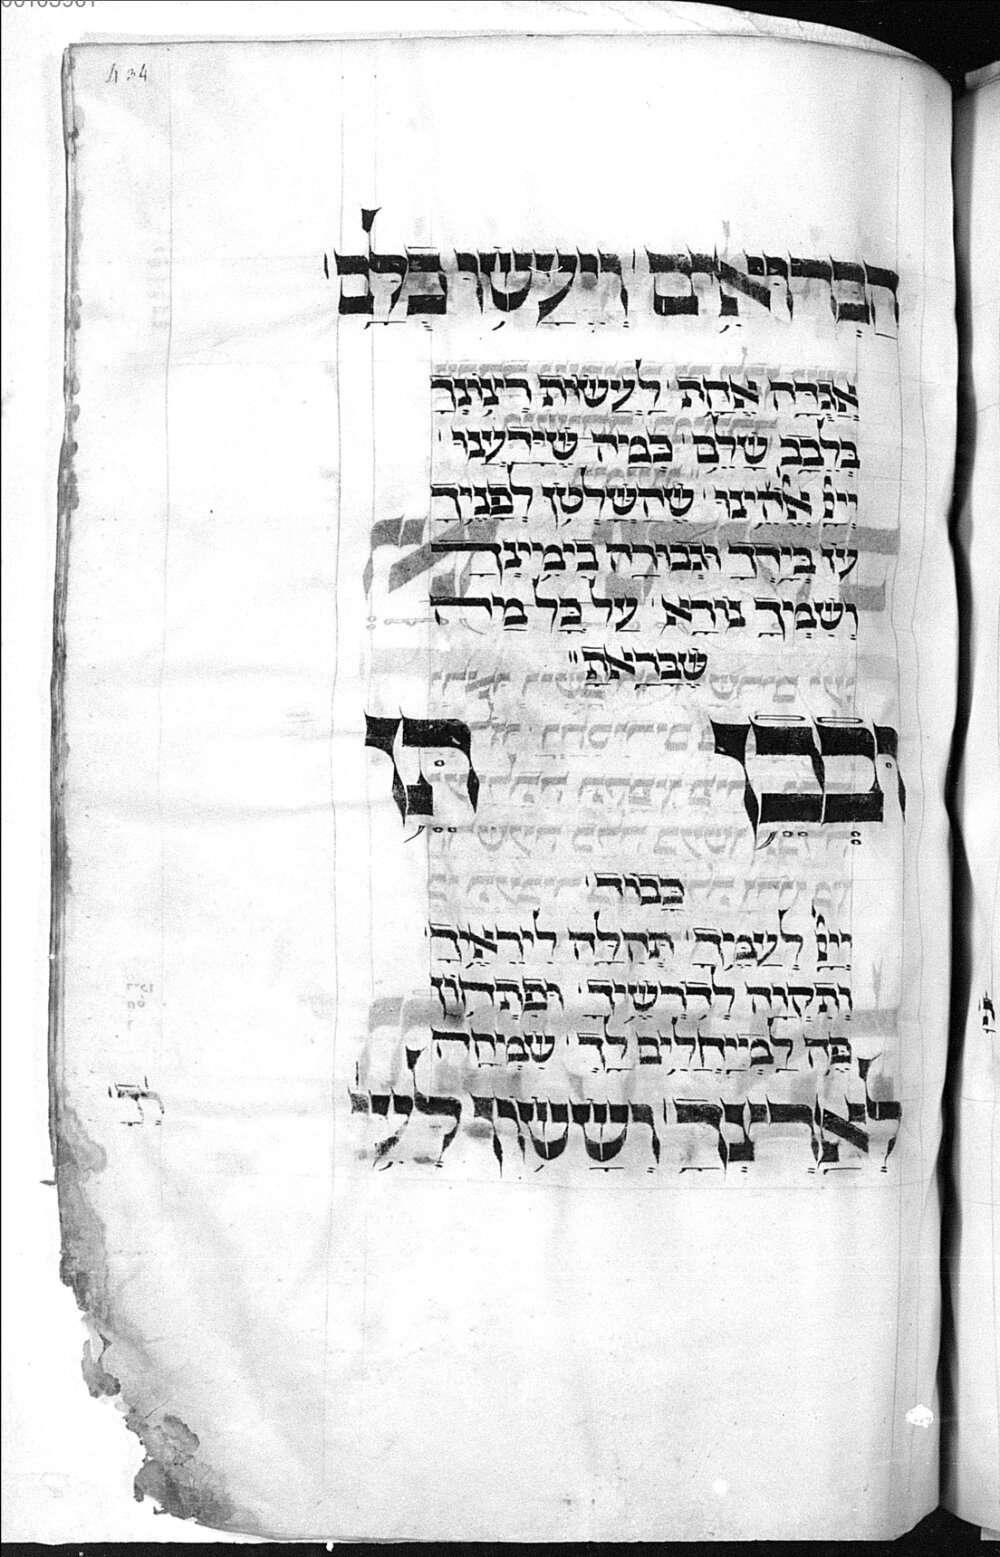 434
הברואים ויעשו כלם
אגדה אחת לעשות רצונך
בלבב שלם כמה שידענו
ייי אלהינו שהשלטן לפניך
עז בידך וגבורה בימינך
ושמך נורא על כל מה
שבראת
ובכן תן
כבוד
ייי לעמך תהלה ליראיך
ותקוה לדורשיך ופתחון
פה למייחלים לך שמחה
לארצך וששון לעי
רך